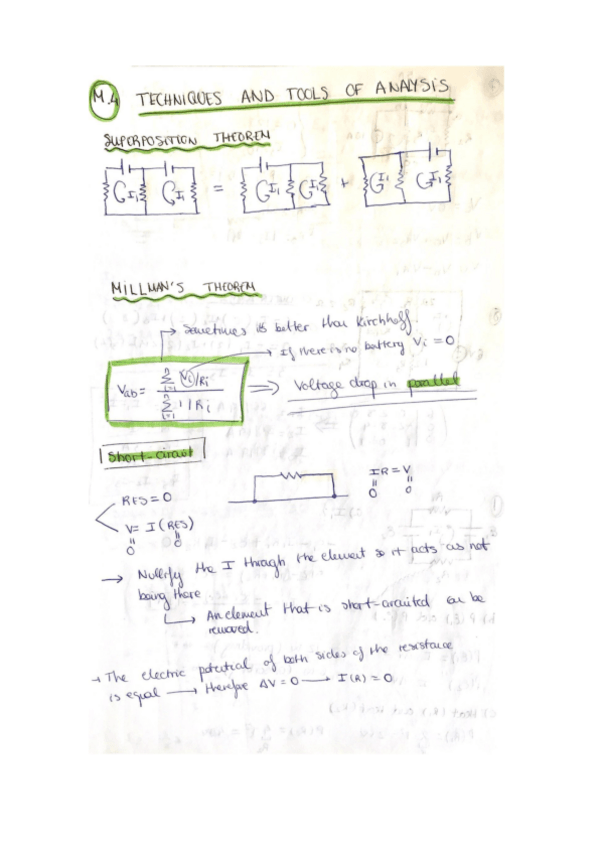 M.4 TECHNIQUES AND TOOLS OF ANALYSIS
SUPERPOSITION THEOREM
I₁ I₁ = I₁ I₁ + I₁ I₁
MILLMAN'S THEOREM
→ Sometimes is better than Kirchhoff.
→ If there is no battery Vi = 0
Vab = Σⁿᵢ₌₁ Vi/Ri / Σⁿᵢ₌₁ 1/Ri ⇒ Voltage drop in parallel
Short-circuit
RES = 0
V = I (RES)
0 0
IR = V
0 0
→ Nullify the I through the element so it acts as not
being there
→ An element that is short-circuited can be
removed.
→ The electric potential of both sides of the resistance
is equal → therefore ΔV = 0 → I(R) = 0